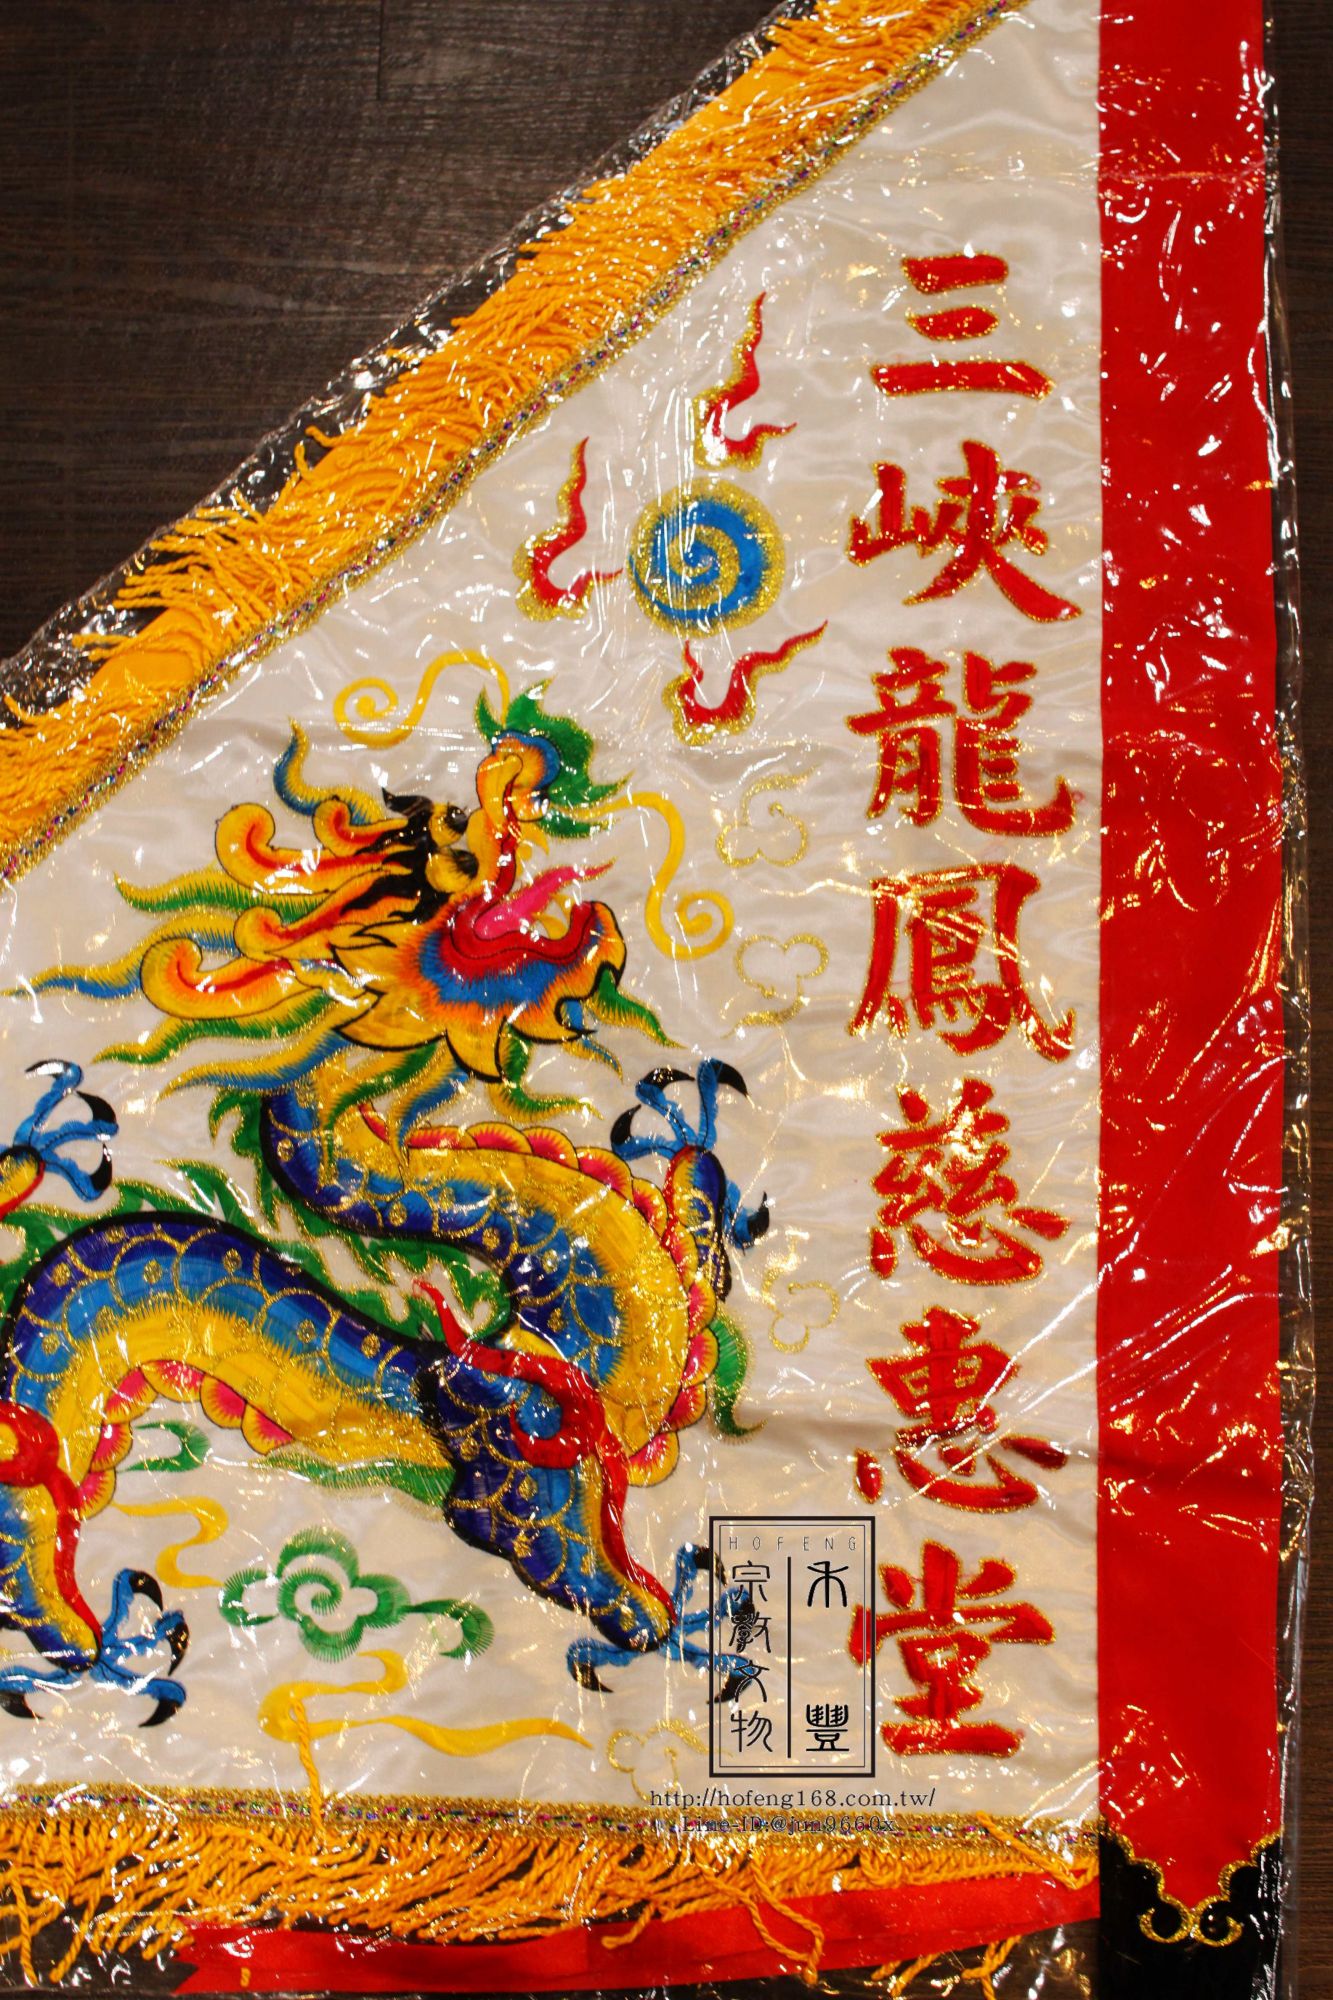 三峽龍鳳慈惠堂
HOFENG
禾豐
宗教文物
http://hofeng168.com.tw/
Line-ID:@jun9660x